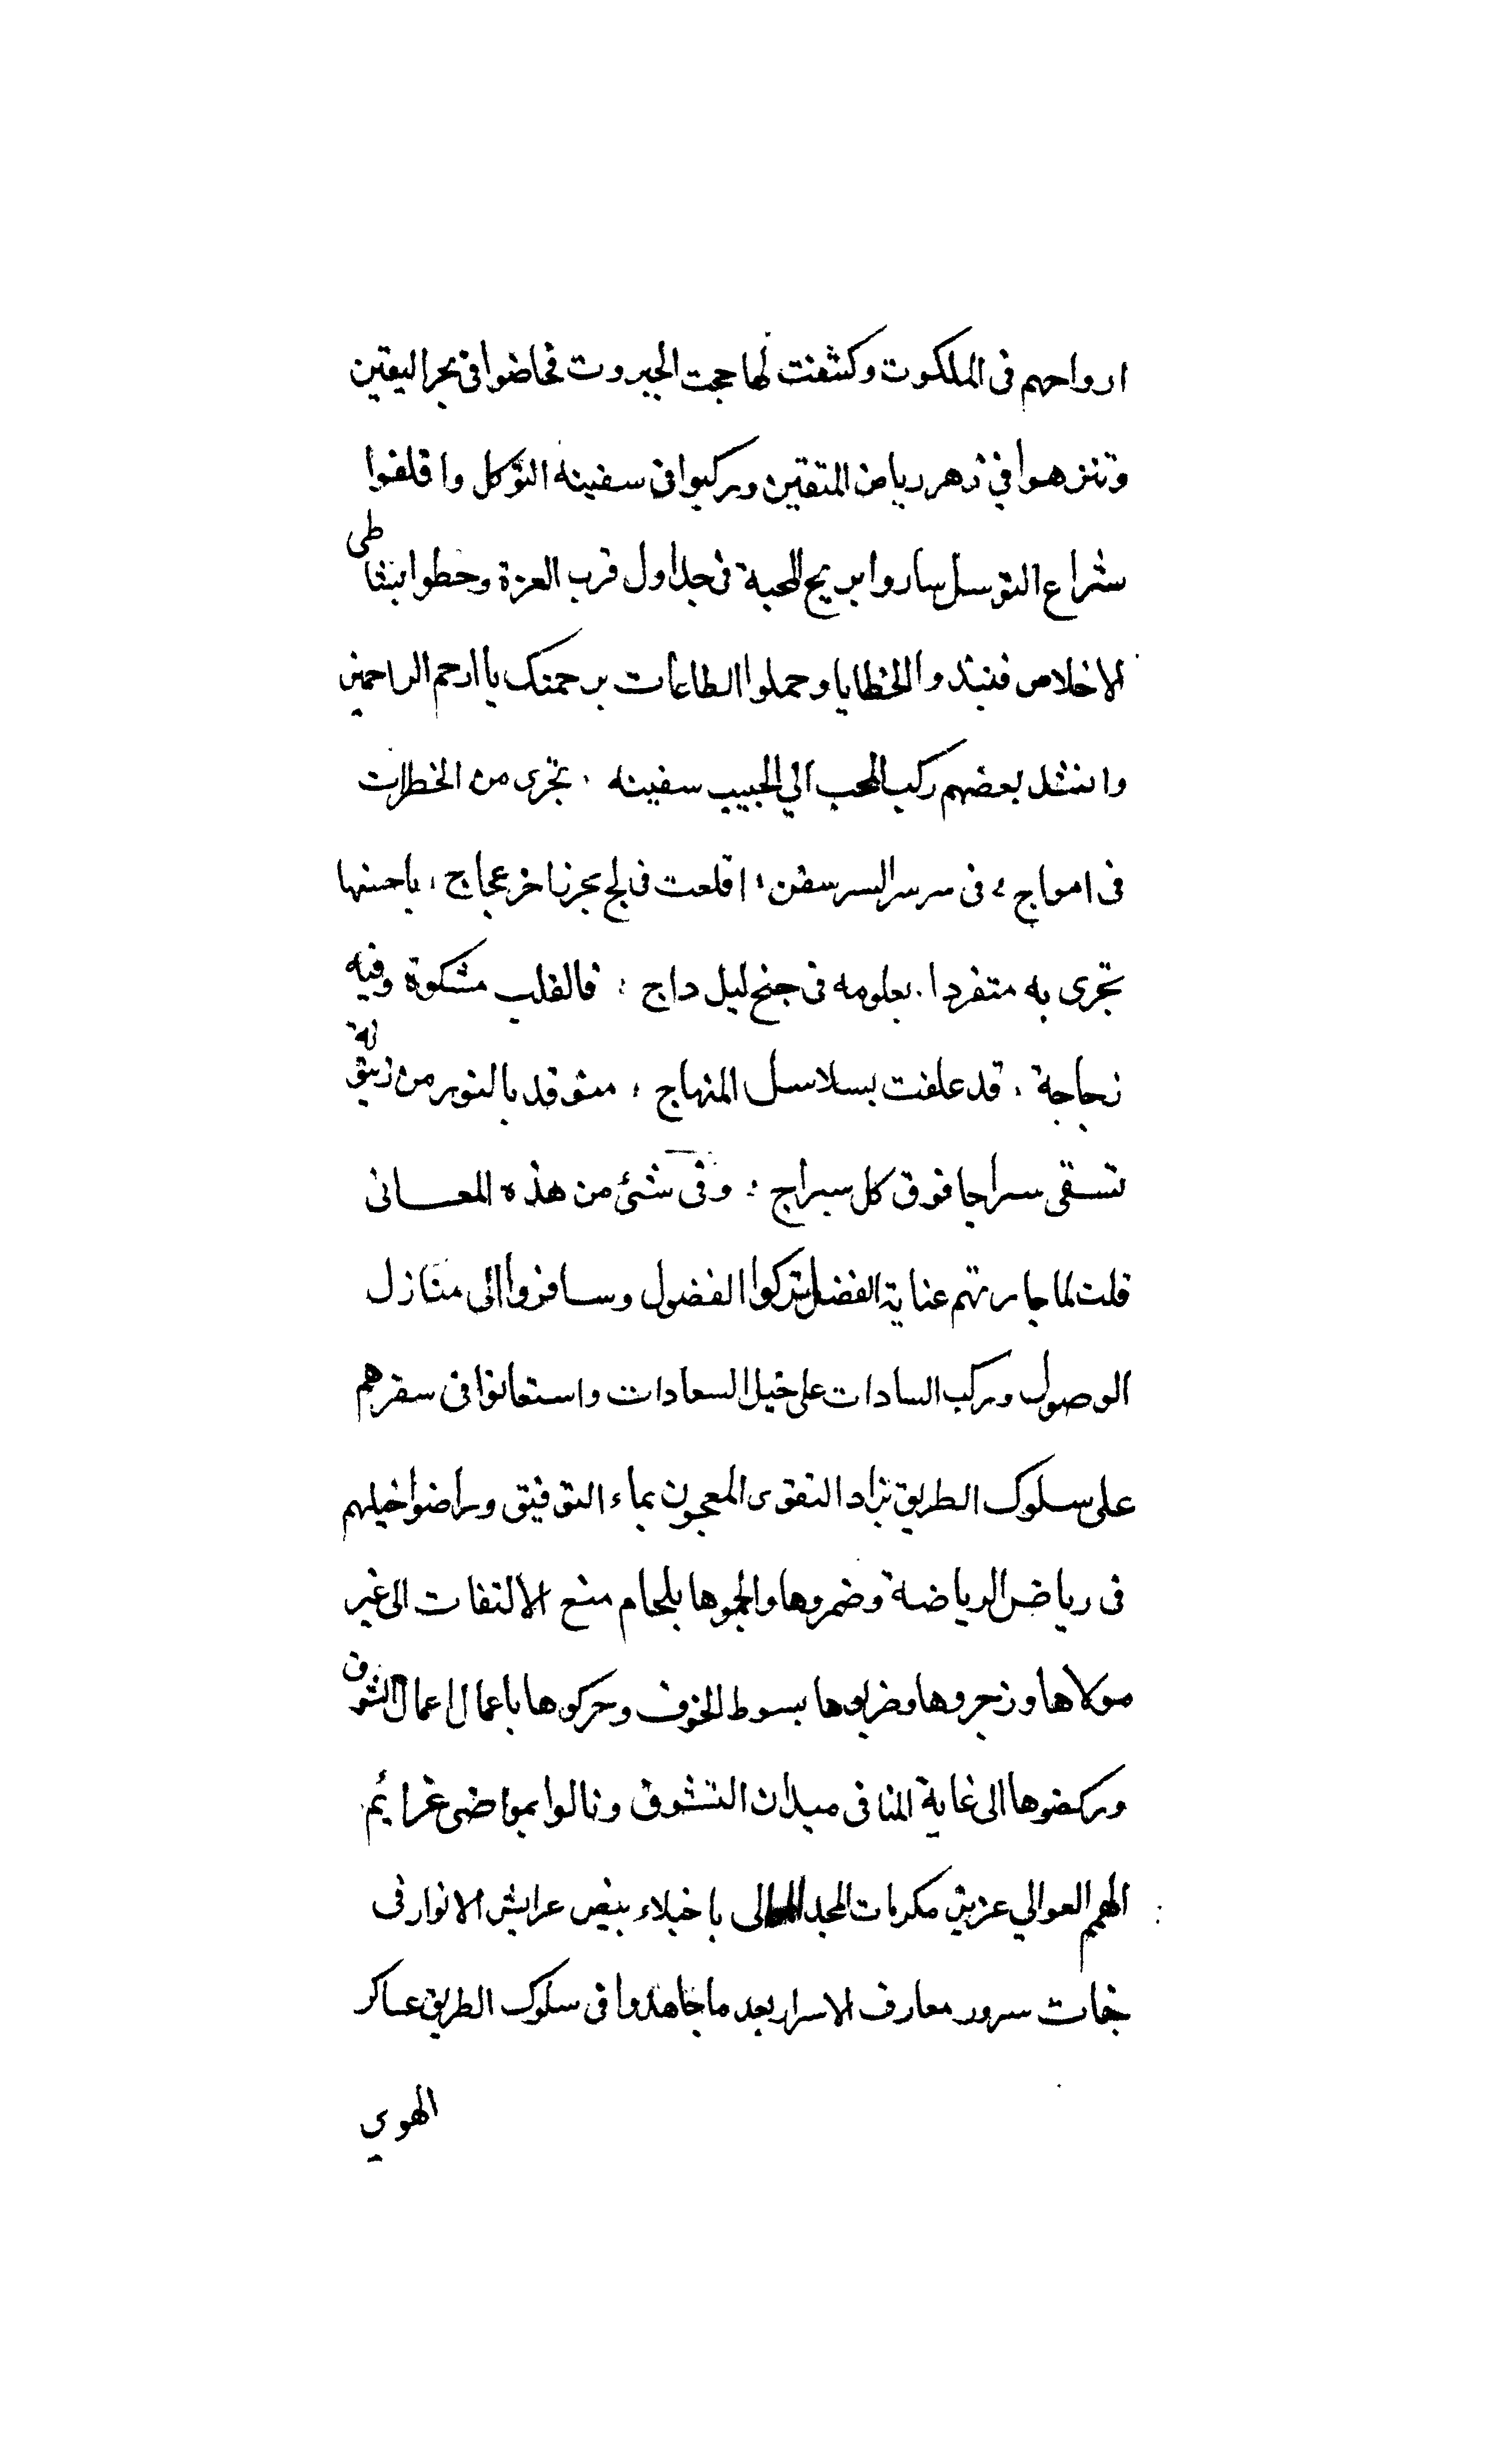 ارواحهم فى الملكوت وكشفت لها حجب الجبروت فخاضوا فى بحر اليقين
وتنزهوا في زهر رياض المتقين وركبوا فى سفينة التوكل واقلعوا
شراع التوسل ساروا بريح المحبة فى جداول قرب العزة وحطوا بشاطى
الاخلاص فنبذوا الخطايا وحملوا الطاعات برحمتك يا ارحم الراحمين
وانشد بعضهم ركب المحب الي الحبيب سفينة . تجرى من الخطرات
فى امواج ؛ فى سر سر السر سفن ؛ اقلعت فى لج بحر زاخر عجاج ؛ يا حسنها
تجرى به متفردا . بعلومه فى جنح ليل داج ؛ فالقلب مشكوة وفيه
زجاجة . قد علقت بسلاسل المنهاج ؛ متوقد بالنور من زيتونة
تسقى سراجا فوق كل سراج ؛ وفى شئ من هذه المعانى
قلت لما جارتهم عناية الفضل تركوا الفضول وسافروا الى منازل
الوصول وركب السادات على خيل السعادات واستعانوا فى سفرهم
على سلوك الطريق بزاد التقوى المعجون بماء التوفيق وراضوا خيلهم
فى رياض الرياضة وضمروها والجموها بلجام منع الالتفات الى غير
مولاها وزجروها وضربوها بسوط الخوف وحركوها باعمال اعمال الشوق
وركضوها الى غاية المنا فى ميدان التشوق ونالوا بمواضى عزائم
الهمم العوالي عزيز مكرمات المجد العالى باخبلاء بيض عرايش الانوار فى
جنات سرور معارف الاسرار بعد ما جاهدوا فى سلوك الطريق عساكر
الهوي